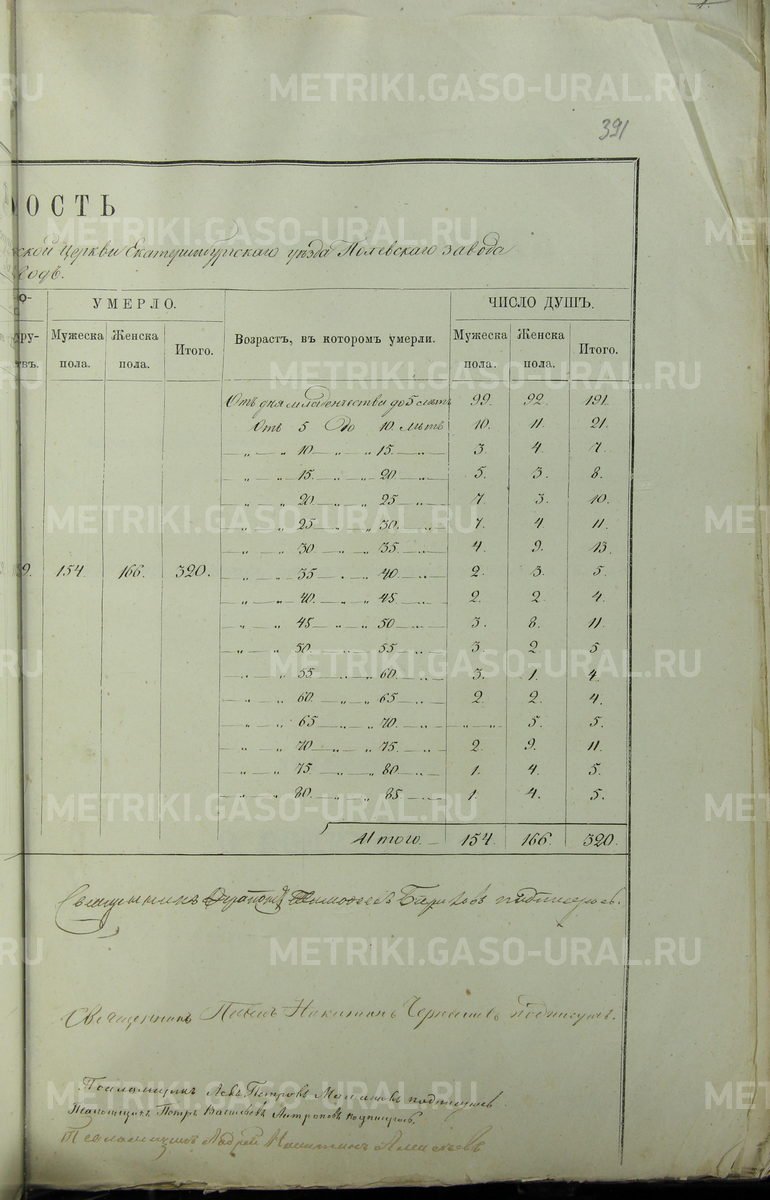 391
ОСТЬ
ской церкви Екатеринбургскаго уѣзда Полевскаго завода
годъ.
УМЕРЛО. ЧИСЛО ДУШЪ.
Мужеска пола. Женска пола. Итого. Возрастъ, въ которомъ умерли. Мужеска пола. Женска пола. Итого.
Отъ дня младенчества до 5 лѣтъ 99. 92. 191.
Отъ 5 до 10 лѣтъ 10. 11. 21.
„ — „ 10 — „ — „ 15. — „ — 3. 4. 7.
„ — „ 15. — „ — „ 20 — „ — 5. 3. 8.
„ — „ 20 — „ — „ 25 — „ — 7. 3. 10.
„ — „ 25 — „ — „ 30. — „ — 7. 4. 11.
„ — „ 30 — „ — „ 35. — „ — 4. 9. 13.
9. 154. 166. 320. „ — „ 35 — „ — „ 40. — „ — 2. 3. 5.
„ — „ 40. — „ — „ 45 — „ — 2. 2. 4.
„ — „ 45 — „ — „ 50 — „ — 3. 8. 11.
„ — „ 50 — „ — „ 55 — „ — 3. 2. 5
„ — „ 55 — „ — „ 60. — „ — 3. 1. 4.
„ — „ 60 — „ — „ 65 — „ — 2. 2. 4.
„ — „ 65 — „ — „ 70. — „ — „ — „ 5. 5.
„ — „ 70 — „ — „ 75. — „ — 2. 9. 11.
„ — „ 75 — „ — „ 80 — „ — 1. 4. 5.
„ — „ 80 — „ — „ 85 — „ — 1. 4. 5.
Итого — 154. 166. 320.
Священникъ
Священникъ Никитинъ
Псаломщикъ Левъ Петровъ
Псаломщикъ Петръ Васильевъ Антроповъ
Псаломщикъ Андрей Никитинъ
METRIKI.GASO-URAL.RU